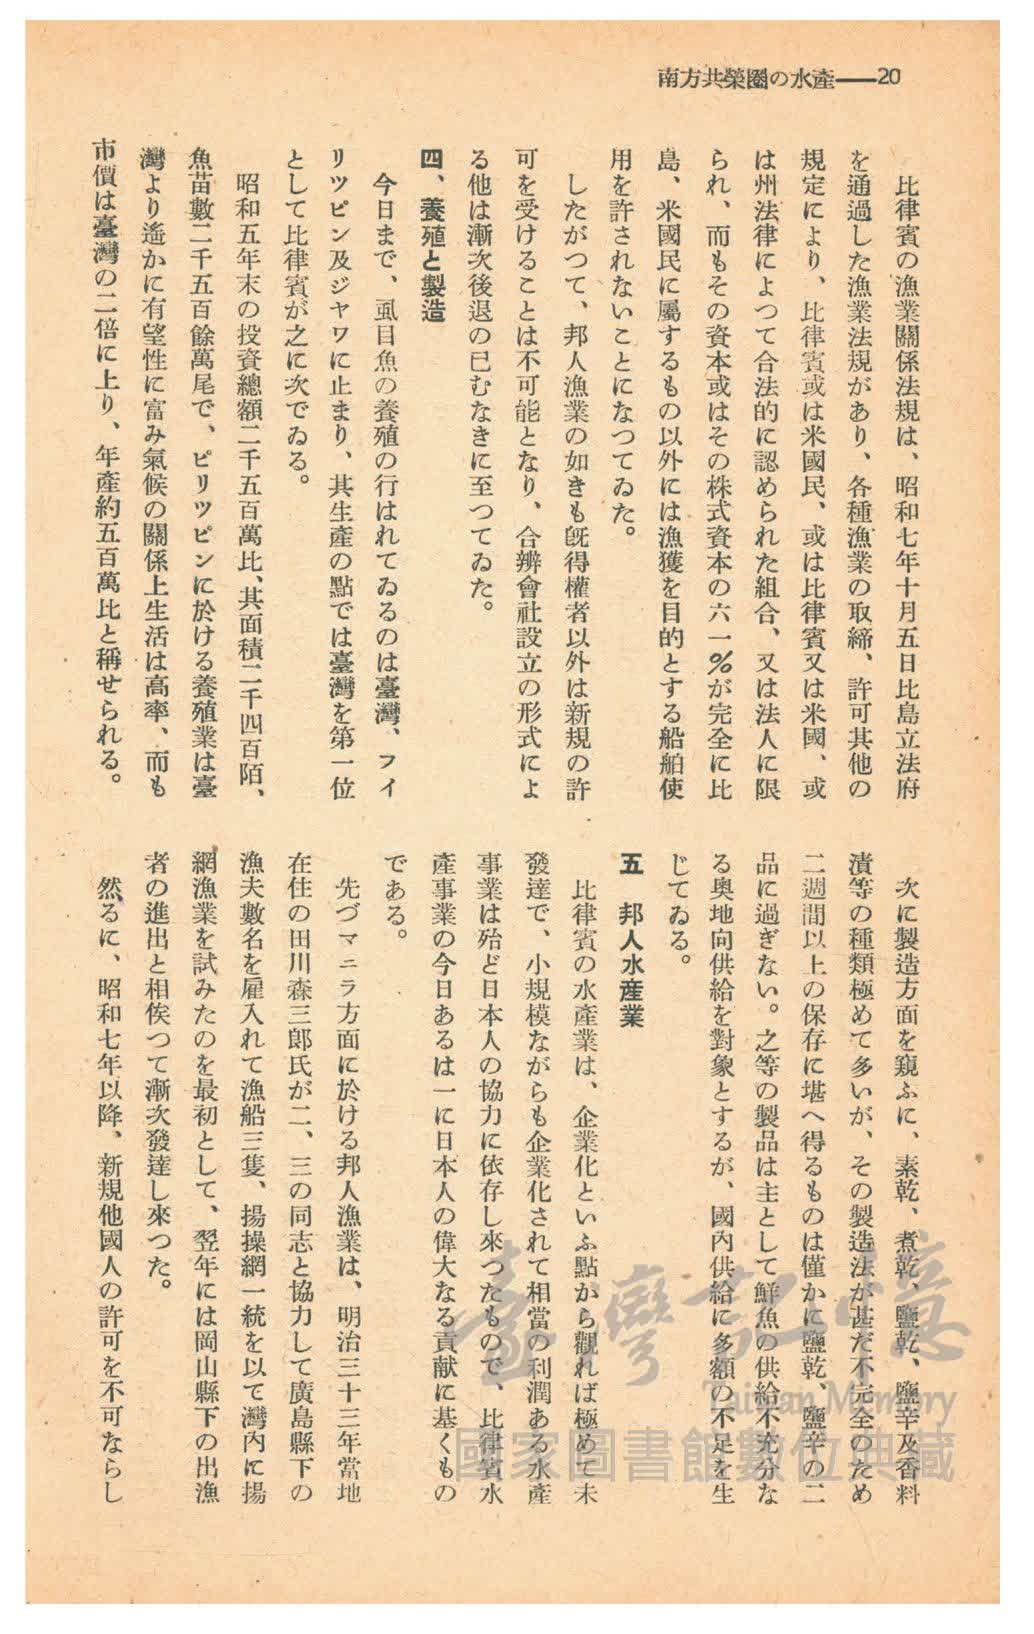 南方共榮圈の水產——20
比律賓の漁業關係法規は、昭和七年十月五日比島立法府
を通過した漁業法規があり、各種漁業の取締、許可其他の
規定により、比律賓或は米國民、或は比律賓又は米國、或
は州法律によつて合法的に認められた組合、又は法人に限
られ、而もその資本或はその株式資本の六一%が完全に比
島、米國民に屬するもの以外には漁獲を目的とする船舶使
用を許されないことになつてゐた。
したがつて、邦人漁業の如きも既得權者以外は新規の許
可を受けることは不可能となり、合辨會社設立の形式によ
る他は漸次後退の已むなきに至つてゐた。
四、養殖と製造
今日まで、虱目魚の養殖の行はれてゐるのは臺灣、フイ
リツピン及ジヤワに止まり、其生產の點では臺灣を第一位
として比律賓が之に次でゐる。
昭和五年末の投資總額二千五百萬比、其面積二千四百陌、
魚苗數二千五百餘萬尾で、ピリツピンに於ける養殖業は臺
灣より遙かに有望性に富み氣候の關係上生活は高率、而も
市價は臺灣の二倍に上り、年產約五百萬比と稱せられる。
次に製造方面を窺ふに、素乾、煮乾、鹽乾、鹽辛及香料
漬等の種類極めて多いが、その製造法が甚だ不完全のため
二週間以上の保存に堪へ得るものは僅かに鹽乾、鹽辛の二
品に過ぎない。之等の製品は主として鮮魚の供給不充分な
る奥地向供給を對象とするが、國內供給に多額の不足を生
じてゐる。
五　邦人水產業
比律賓の水產業は、企業化といふ點から觀れば極めて未
發達で、小規模ながらも企業化されて相當の利潤ある水產
事業は殆ど日本人の協力に依存し來つたもので、比律賓水
產事業の今日あるは一に日本人の偉大なる貢献に基くもの
である。
先づマニラ方面に於ける邦人漁業は、明治三十三年當地
在住の田川森三郎氏が二、三の同志と協力して廣島縣下の
漁夫數名を雇入れて漁船三隻、揚操網一統を以て灣內に揚
網漁業を試みたのを最初として、翌年には岡山縣下の出漁
者の進出と相俟つて漸次發達し來つた。
然るに、昭和七年以降、新規他國人の許可を不可ならし
臺灣記憶
Taiwan Memory
國家圖書館數位典藏